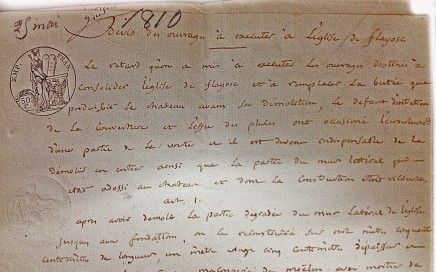 25 mai 1810
Devis des ouvrages à exécuter à l'Église de flayosc
EMP. FRA.
50
Le retard qu'on a mis a executer les ouvrages destinés à
consolider l'église de flayosc et à remplacer la butée que
produisoit le chateau avant sa démolition, le defaut d'entretien
de la couverture et l'effet des pluies ont occasioné l'écroulement
d'une partie de la voute et il est devenu indispensable de la
démolir en entier ainsi que la partie du mur latéral qui
etoit adossé au chateau et dont la construction étoit vicieuse.
art. 1.
après avoir démoli la partie dégradée du mur latéral de l'église
jusques aux fondations, on le reconstruira sur onze metres cinquante
centimètres de longueur, un metre vingt cinq centimetres d'épaisseur en
maçonnerie de moëlon avec mortier de